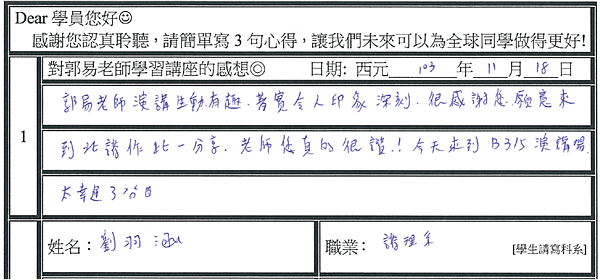 Dear 學員您好☺
感謝您認真聆聽，請簡單寫 3 句心得，讓我們未來可以為全球同學做得更好!
對郭易老師學習講座的感想◎ 日期: 西元 103 年 11 月 18 日
1
郭易老師演講生動有趣.著實令人印象深刻.很感謝您願意來
到此講作此一分享.老師您真的很讚.! 今天來到B315演講場
太幸運了
姓名：劉羽涵
職業： 護理系 [學生請寫科系]